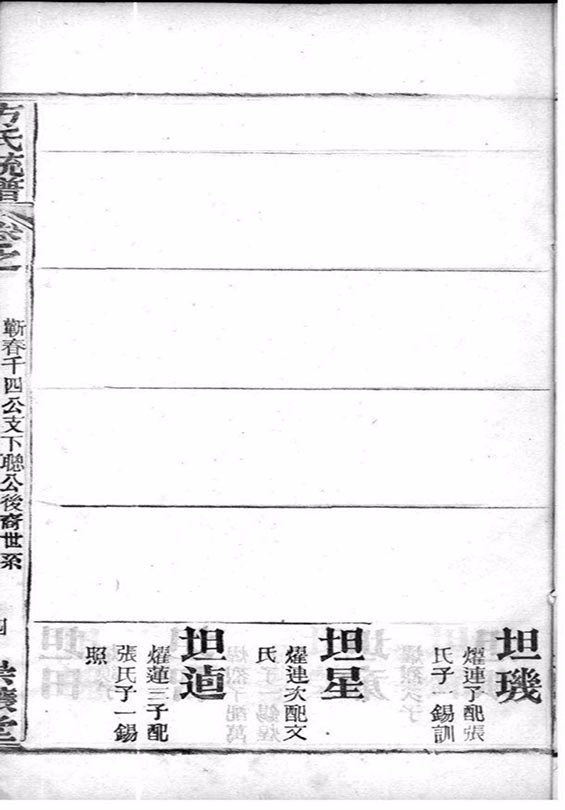 坦璣
燿連子配張
氏子一錫訓
坦星
燿連次配文
氏
坦道
燿蓮三子配
張氏子一錫
照
方氏統譜
卷之
蘄春千四公支下聰公後裔世系
四